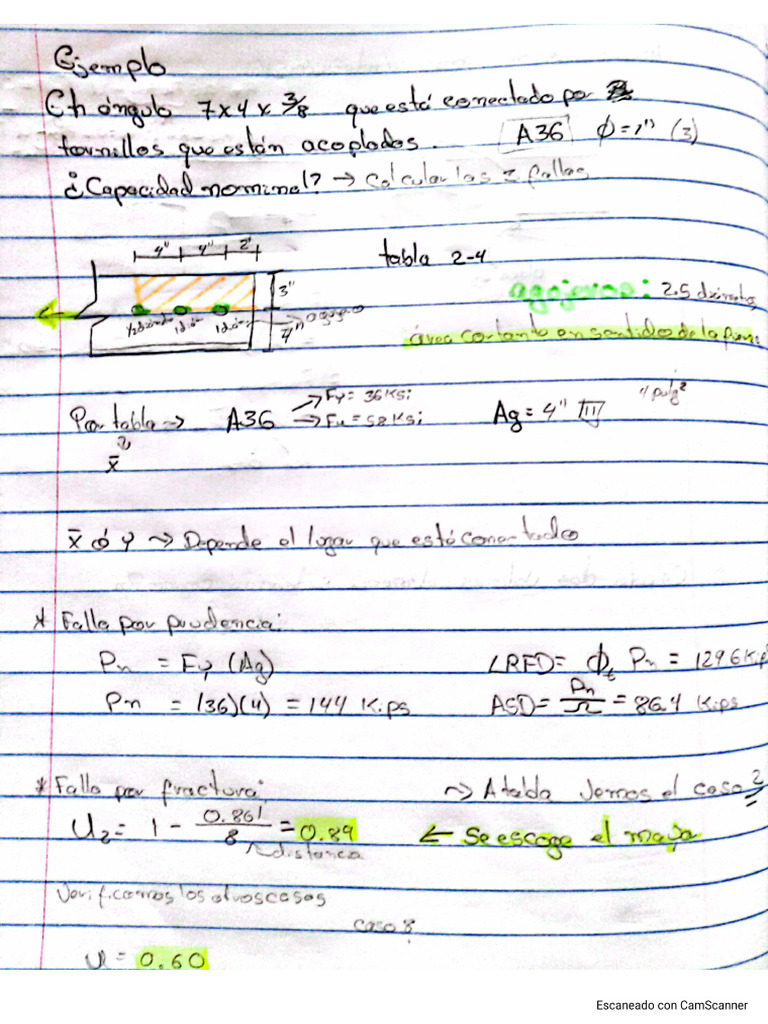 Ejemplo
Ch ángulo 7 x 4 x 3/8 que está conectado por
tornillos que están acoplados. A36 φ = 1" (3)
¿Capacidad nominal? → Calcular las 2 fallas
4" 4" 2"
tabla 2-4
3"
agujeros: 2.5 diámetro
1/2 diám 1 diám 1 diám
4"
área cortante en sentido de la
Fy = 36 Ksi
4 pulg²
Por tabla → A36 → Fu = 58 Ksi Ag = 4"
x̄
x̄ ó y → Depende el lugar que está conectado
* Falla por
Pn = Fy (Ag) LRFD = φt Pn = 129.6 Kip
Pn = (36)(4) = 144 Kips ASD = Pn/Ω = 86.4 Kips
* Falla por fractura: → A tabla vemos el caso 2
U2 = 1 - 0.861/8 = 0.89 ← Se escoge el mayor
distancia
Verificamos los otros casos
caso 8
U = 0.60
Escaneado con CamScanner